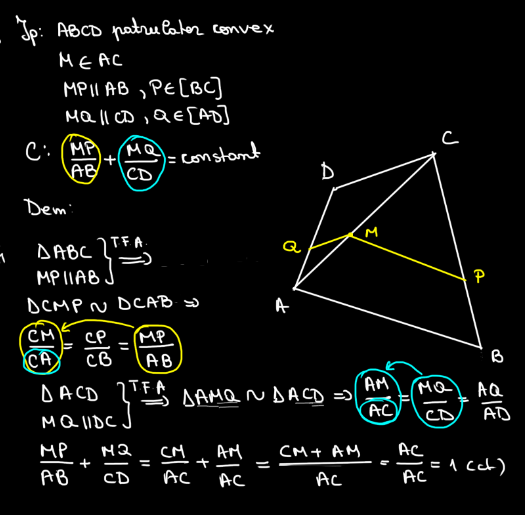 Jp: ABCD patrulater convex
M ∈ AC
MP ∥ AB, P∈[BC]
MQ ∥ CD, Q∈[AD]
C: MP/AB + MQ/CD = constant
Dem:
ΔABC
MP∥AB } TFA ⟹
ΔCMP ~ ΔCAB ⇒
CM/CA = CP/CB = MP/AB
ΔACD
MQ∥DC } TFA ⟹ ΔAMQ ~ ΔACD ⇒ AM/AC = MQ/CD = AQ/AD
MP/AB + MQ/CD = CM/AC + AM/AC = CM + AM/AC = AC/AC = 1 (ct)
C
D
Q
M
P
A
B